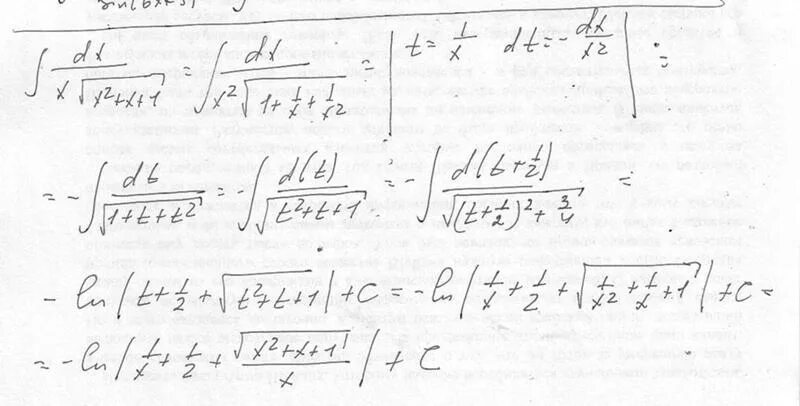 sin(6x
∫ dx / (x√(x²+x+1)) = ∫ dx / (x²√(1+1/x+1/x²)) = | t = 1/x dt = -dx/x² | =
= -∫ dt / √(1+t+t²) = -∫ d(t) / √(t²+t+1) = -∫ d(t+1/2) / √((t+1/2)²+3/4) =
- ln|t+1/2+√(t²+t+1)| + C = -ln|1/x+1/2+√(1/x²+1/x+1)| + C =
= -ln|1/x+1/2+√(x²+x+1)/x| + C